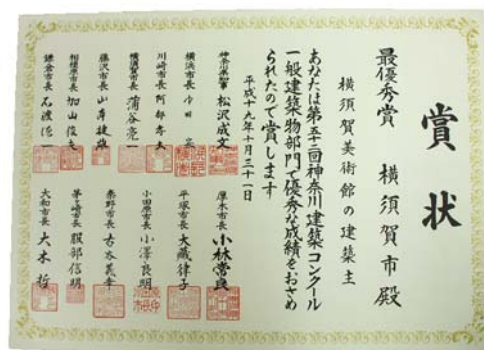 賞状
最優秀賞 横須賀市殿
横須賀美術館の建築主
あなたは第五十二回神奈川建築コンクール
一般建築物部門で優秀な成績をおさめ
られたので賞します
平成十九年十月三十一日
神奈川県知事 松沢成文
横浜市長 中田宏
川崎市長 阿部孝夫
横須賀市長 蒲谷亮一
藤沢市長 山本捷雄
相模原市長 加山俊夫
鎌倉市長 石渡德一
厚木市長 小林常良
平塚市長 大藏律子
小田原市長 小澤良明
秦野市長 古谷義幸
茅ヶ崎市長 服部信明
大和市長 大木哲